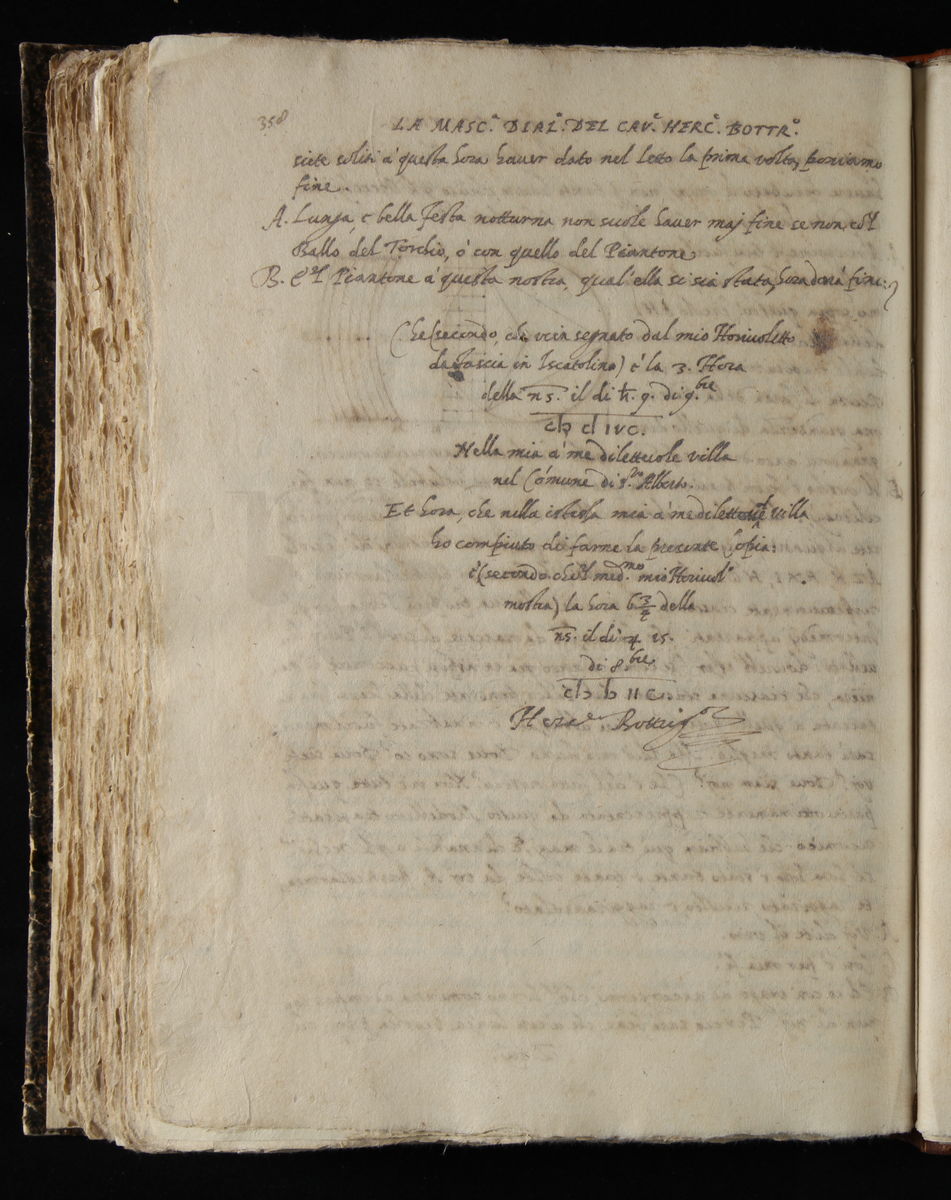 358
LA MASC.ª DIAL.º DEL CAV.ʳ HERC.ᵉ BOTTR.º
siete soliti à questa hora haver dato nel letto la prima volta, poniamo
fine.
A. Lunga, e bella festa notturna non suole haver mai fine se non col
Ballo del Torchio, ò con quello del Piantone
B. E'l Piantone à questa nostra, qual'ella si sia stata, hora darà fine:
Che (secondo, che vien segnato dal mio Horivoletto
da fascia in Iscatolino) è la 3. Hora
della ns. il di ♄. 9. di 9.bre
cIɔ cI IVC.
Nella mia à me dilettevole villa
nel Comune di s.to Alberto.
Et hora, che nella istessa mia à me dilettevole villa
ho compiuto di farne la presente Copia:
è (secondo che'l med.mo mio Horivol.º
mostra) la hora 6 3/4 della
ns. il di ♃ 15.
di 8.bre
cIɔ Iɔ IIC.
Herc.e Bottrig.ro